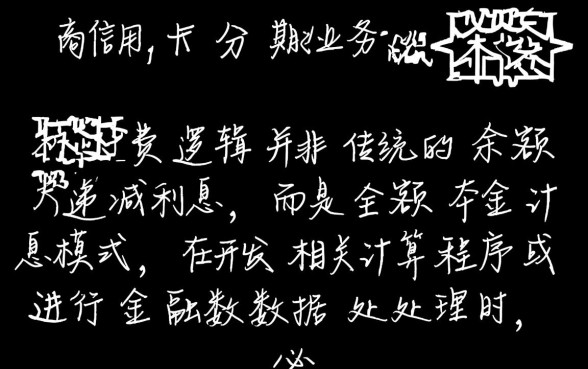 商信用,卡分期业务
费逻辑并非传统的余额
递减利息，而是全额本金计
息模式，在开发相关计算程序或
进行金融数数据处处理时，
必